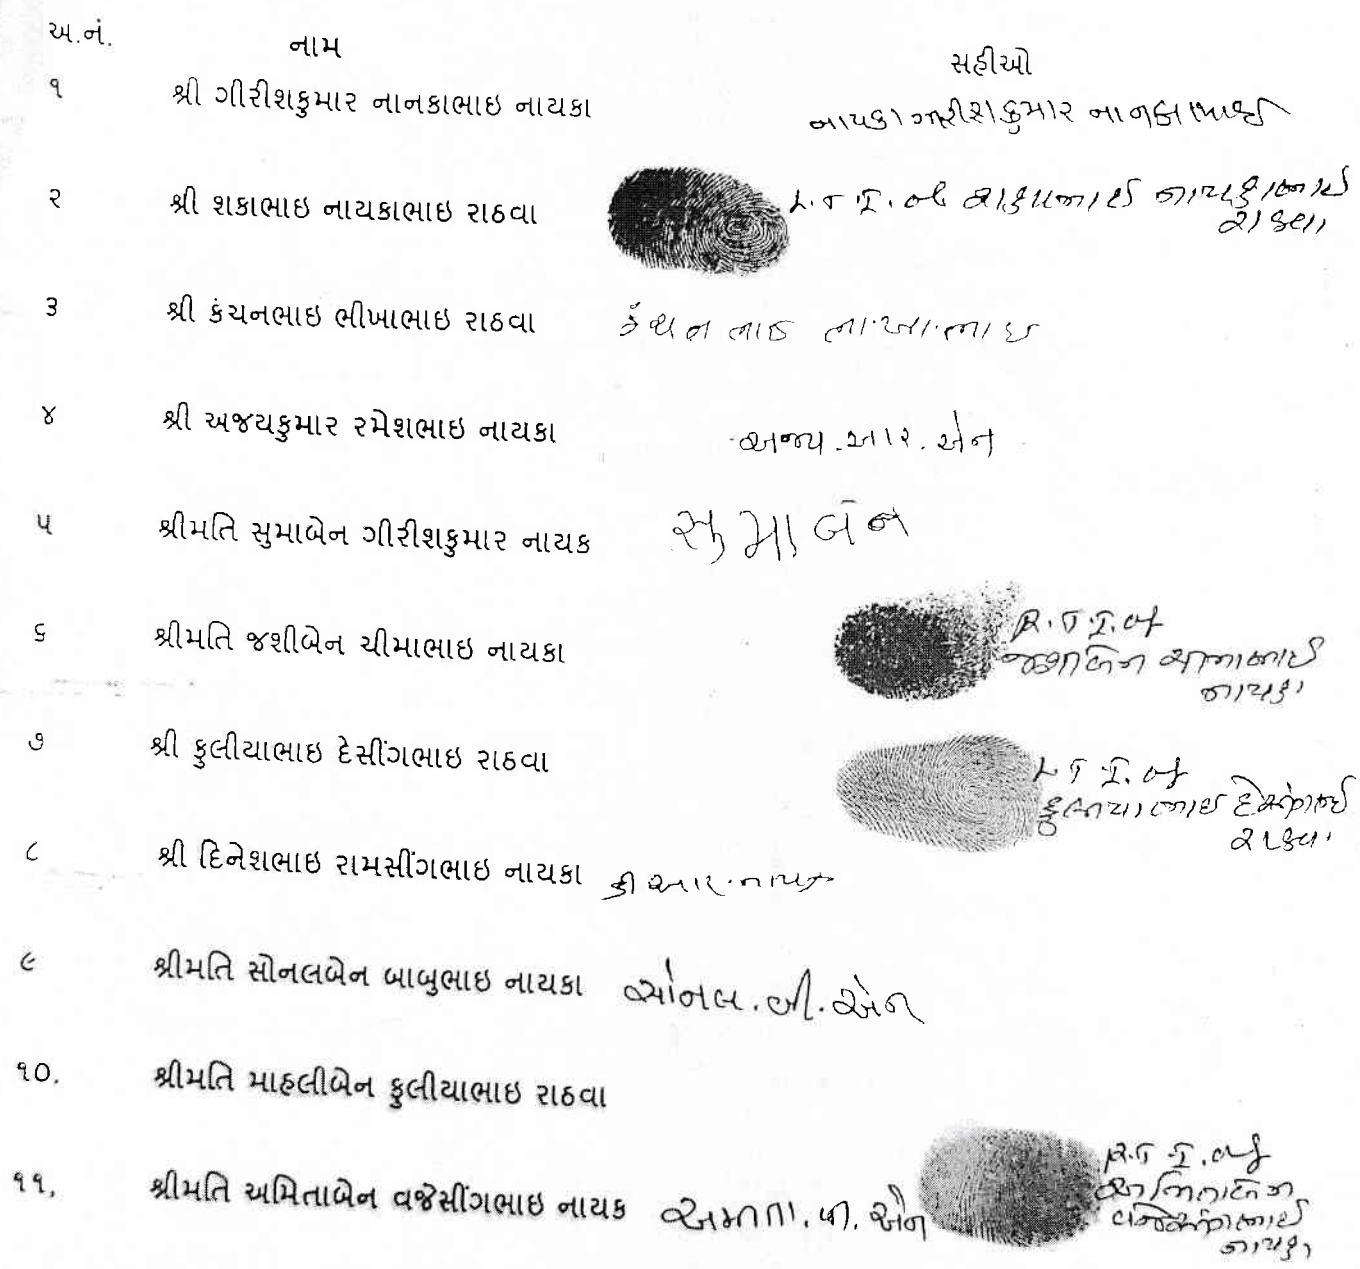 અ.નં. નામ સહીઓ
૧ શ્રી ગીરીશકુમાર નાનકાભાઇ નાયકા નાયકા ગીરીશકુમાર નાનકાભાઈ
૨ શ્રી શકાભાઇ નાયકાભાઇ રાઠવા L.T.I. of શકાભાઈ નાયકાભાઈ
રાઠવા
૩ શ્રી કંચનભાઇ ભીખાભાઇ રાઠવા કંચનભાઇ ભીખાભાઇ
૪ શ્રી અજયકુમાર રમેશભાઇ નાયકા અજય.આર.એન
૫ શ્રીમતિ સુમાબેન ગીરીશકુમાર નાયક સુમાબેન
૬ શ્રીમતિ જશીબેન ચીમાભાઇ નાયકા R.T.I. of
જશીબેન ચીમાભાઈ
નાયકા
૭ શ્રી કુલીયાભાઇ દેસીંગભાઇ રાઠવા L.T.I. of
કુલીયાભાઈ દેસીંગભાઈ
રાઠવા
૮ શ્રી દિનેશભાઇ રામસીંગભાઇ નાયકા ડી આર.નાયક
૯ શ્રીમતિ સોનલબેન બાબુભાઇ નાયકા સોનલ.બી.એન
૧૦. શ્રીમતિ માહલીબેન કુલીયાભાઇ રાઠવા
૧૧. શ્રીમતિ અમિતાબેન વજેસીંગભાઇ નાયક અમીતા. વી. એન R.T.I. of
અમિતાબેન
વજેસીંગભાઈ
નાયકા